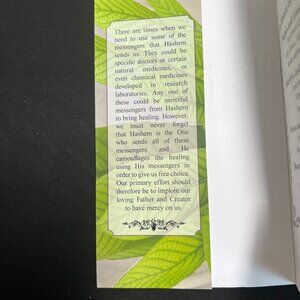 There are times when we
need to use some of the
messengers that Hashem
sends us. They could be
specific doctors or certain
natural medicines, or
even chemical medicines
developed in research
laboratories. Any one of
these could be merciful
messengers from Hashem
to bring healing. However,
we must never forget
that Hashem is the One
who sends all of these
messengers and He
camouflages the healing
using His messengers in
order to give us free choice.
Our primary effort should
therefore be to implore our
loving Father and Creator
to have mercy on us.